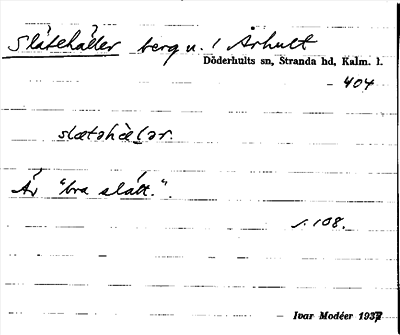 Slätehäller berg u. / Århult
Döderhults sn, Stranda hd, Kalm. l.
- 404
slætəhælər.
Är "bra slätt.".
s. 108.
Ivar Modéer 1937